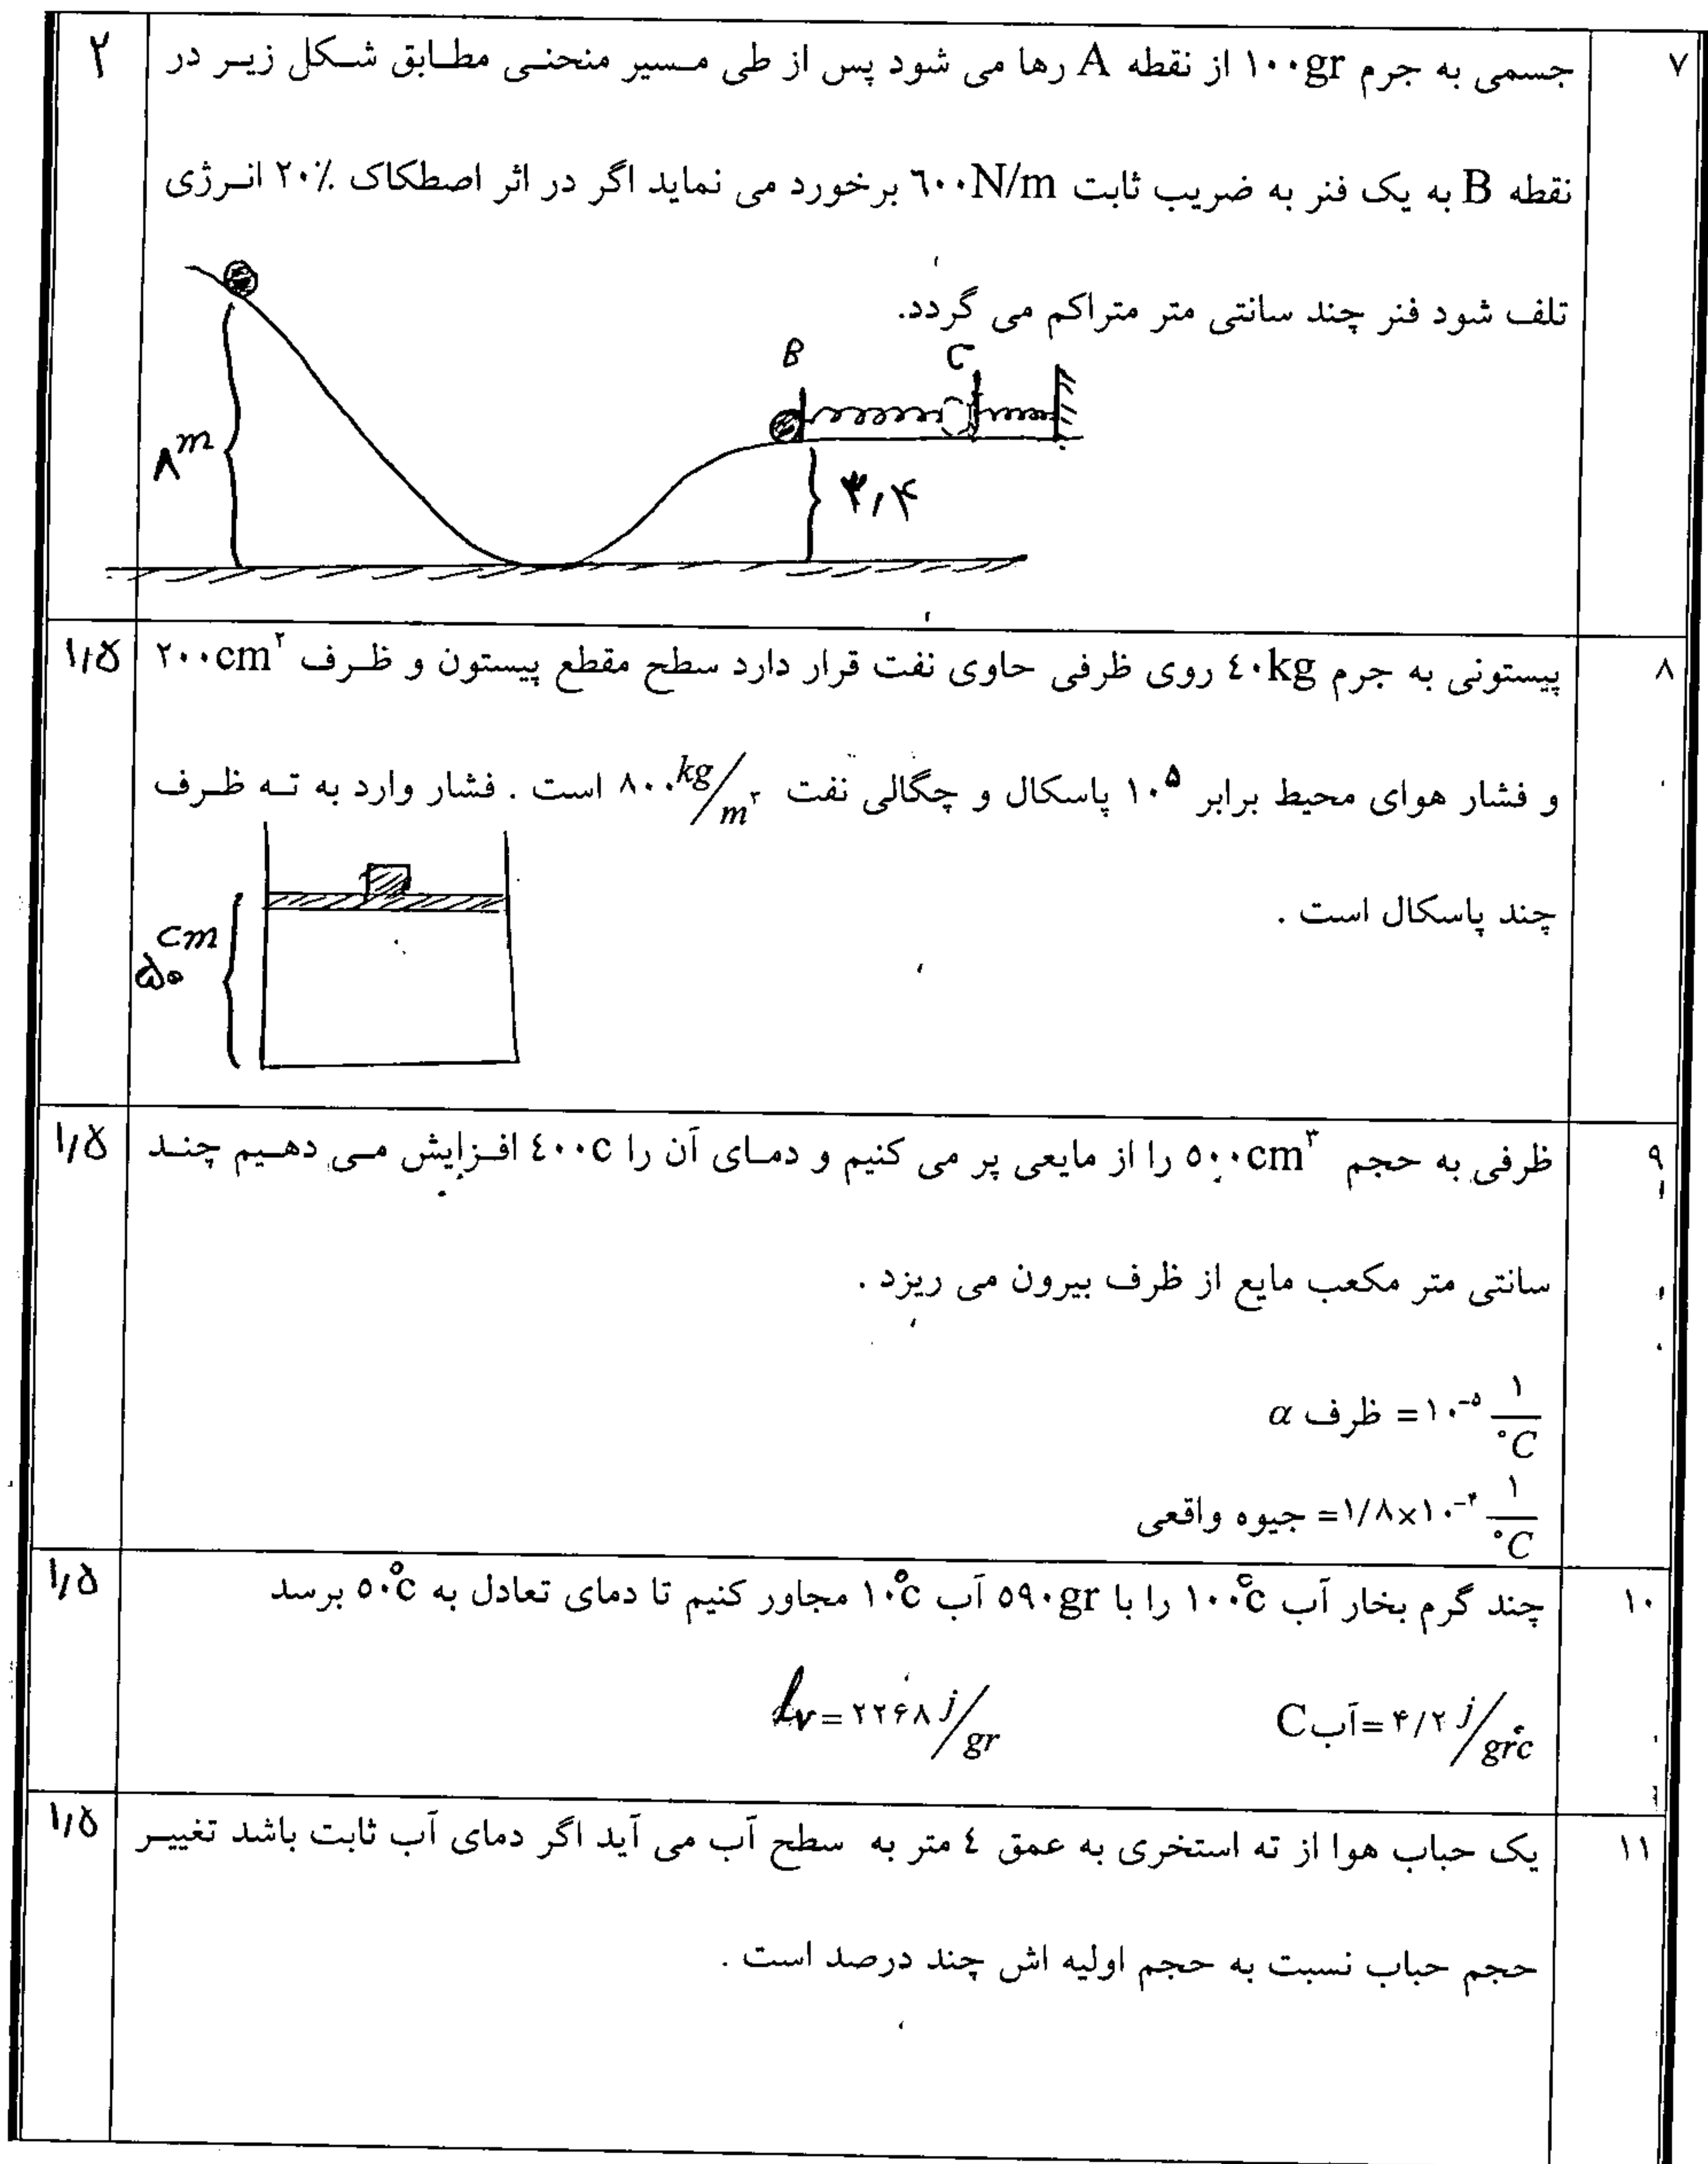 ۷ جسمی به جرم ۱۰۰gr از نقطه A رها می شود پس از طی مسیر منحنی مطابق شکل زیر در ۲
نقطه B به یک فنر به ضریب ثابت ٦۰۰N/m برخورد می نماید اگر در اثر اصطکاک ۲۰٪ انرژی
تلف شود فنر چند سانتی متر متراکم می گردد.
B C
۸m
۳,۴
۸ پیستونی به جرم ٤۰kg روی ظرفی حاوی نفت قرار دارد سطح مقطع پیستون و ظرف ۲۰۰cm² ۱,۵
و فشار هوای محیط برابر ۱۰⁵ پاسکال و چگالی نفت ۸۰۰kg/m³ است . فشار وارد به ته ظرف
چند پاسکال است .
cm
۵۰
۹ ظرفی به حجم ۵۰۰cm³ را از مایعی پر می کنیم و دمای آن را ٤۰۰c افزایش می دهیم چند ۱,۵
سانتی متر مکعب مایع از ظرف بیرون می ریزد .
α ظرف =۱۰⁻⁵ ۱/°C
جیوه واقعی =۱/۸×۱۰⁻⁴ ۱/°C
۱۰ چند گرم بخار آب ۱۰۰°c را با ۵۹۰gr آب ۱۰°c مجاور کنیم تا دمای تعادل به ۵۰°c برسد ۱,۵
C آب=۴/۲ j/gr°c Lv=۲۲۶۸ j/gr
۱۱ یک حباب هوا از ته استخری به عمق ٤ متر به سطح آب می آید اگر دمای آب ثابت باشد تغییر ۱,۵
حجم حباب نسبت به حجم اولیه اش چند درصد است .